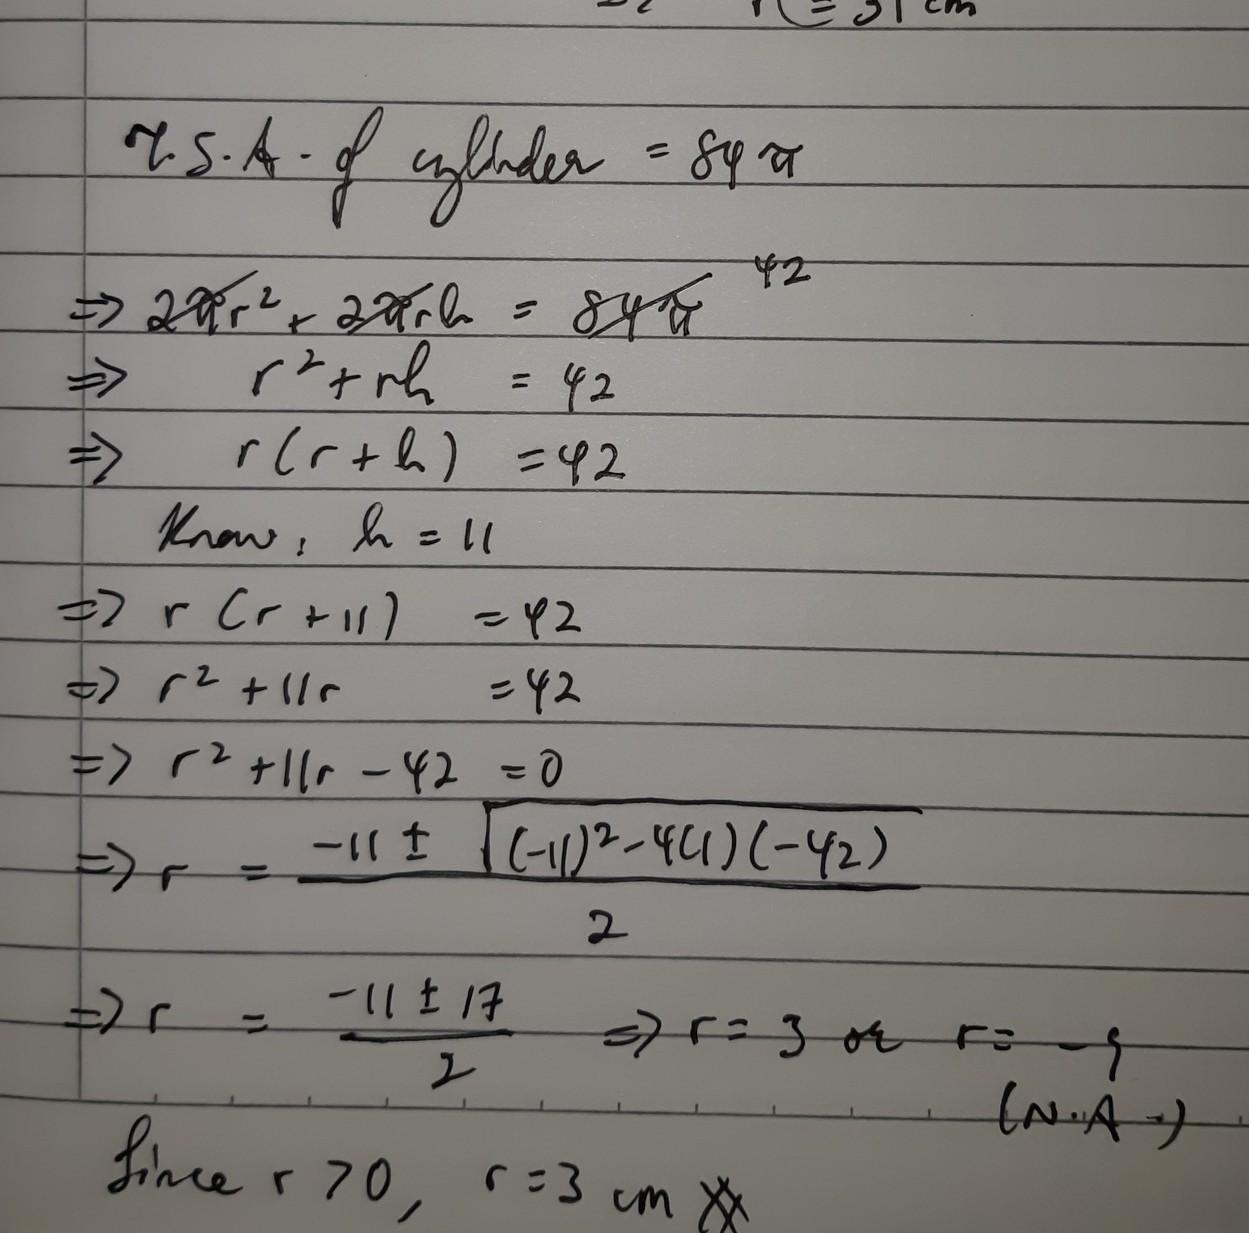 r = 31 cm
T.S.A. of cylinder = 84π
⇒ 2πr² + 2πrh = 84π 42
⇒ r² + rh = 42
⇒ r(r + h) = 42
Know, h = 11
⇒ r (r + 11) = 42
⇒ r² + 11r = 42
⇒ r² + 11r - 42 = 0
⇒ r = (-11 ± √((-11)² - 4(1)(-42))) / 2
⇒ r = (-11 ± 17) / 2 ⇒ r = 3 or r = -9
(N.A.)
Since r > 0, r = 3 cm